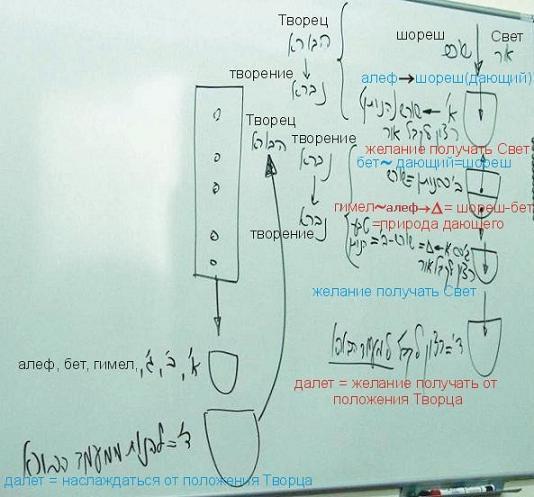 Творец
הבורא
творение
נברא
шореш
שורש
Свет
אור
алеф→шореш(дающий)
א' ← שורש (הנותן)
רצון לקבל אור
желание получать Свет
Творец
הבורא
творение
נברא
бет~ дающий=шореш
гимел~алеф→Δ= шореш-бет
=природа дающего
творение
נברא
רצון לקבל אור
желание получать Свет
ד'=רצון לקבל ממעמד הבורא
далет = желание получать от
положения Творца
алеф, бет, гимел,
א', ב', ג',
ד'=להנות ממעמד הבורא
далет = наслаждаться от положения Творца